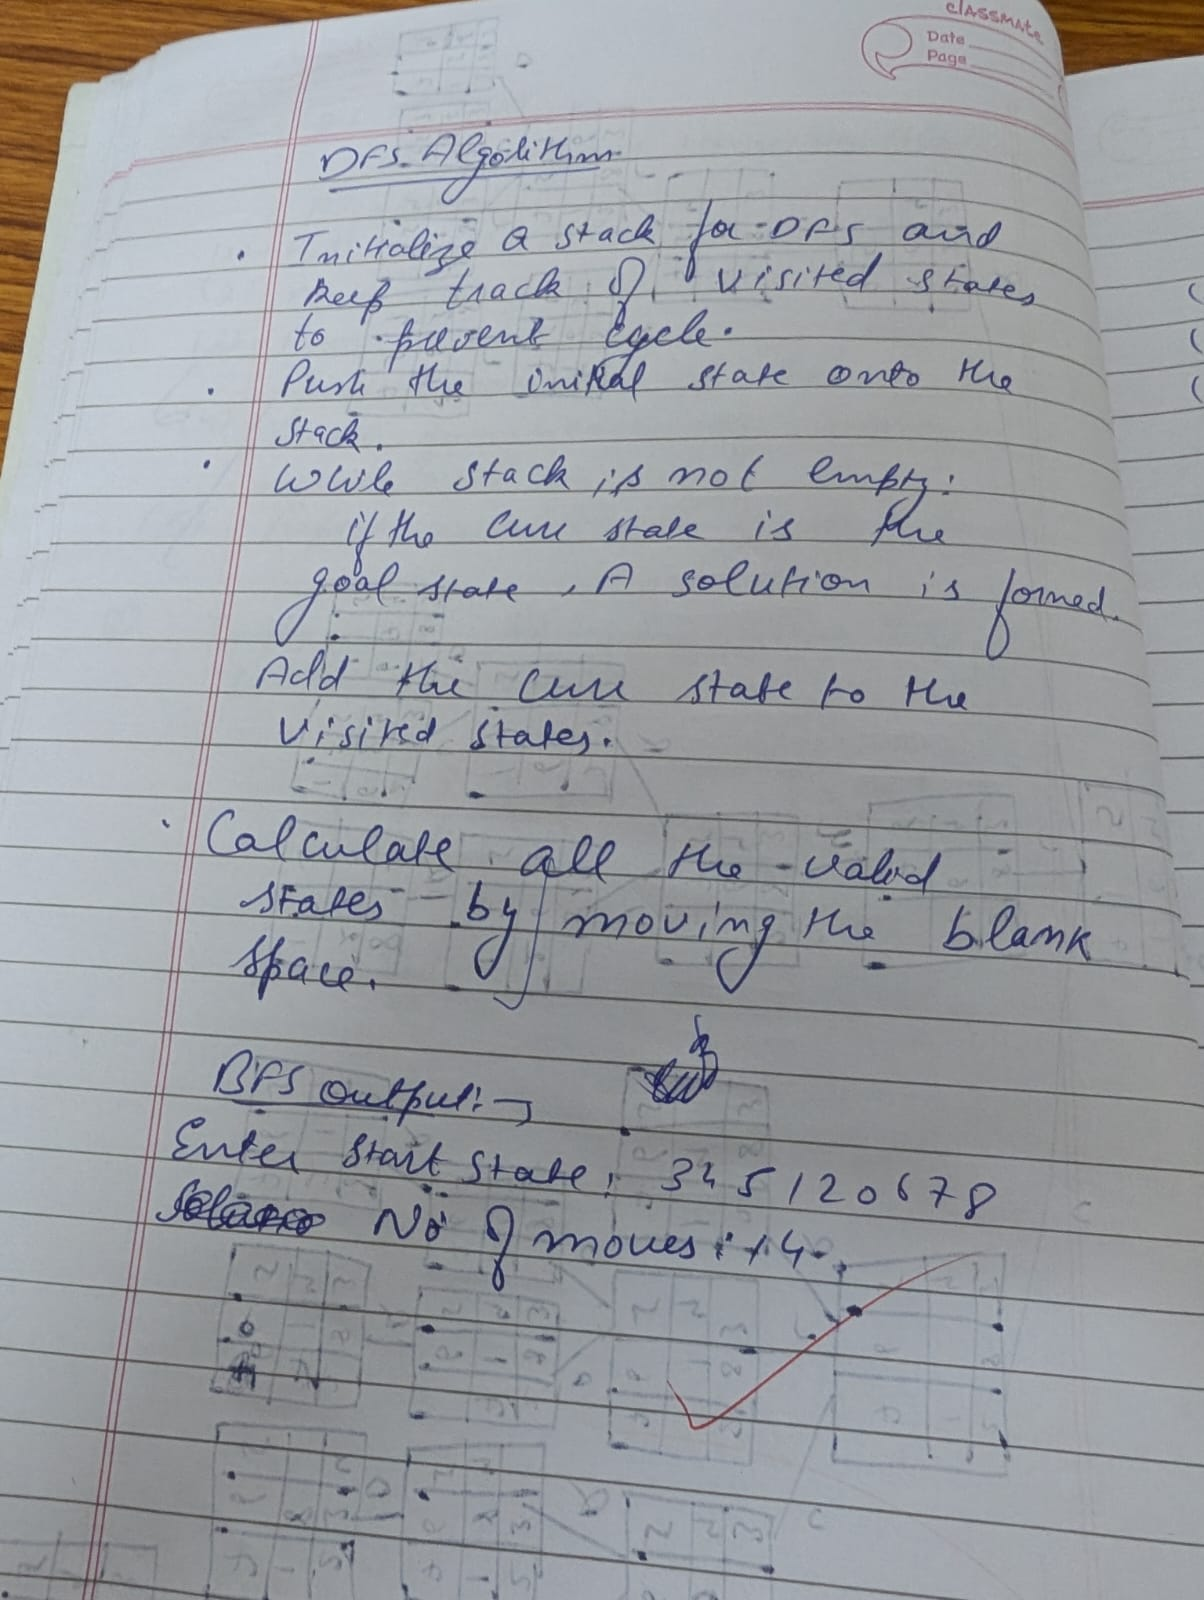 classmate
Date
Page
DFS Algorithm
• Initialize a stack for DFS and
keep track of visited states
to prevent cycle.
• Push the initial state onto the
stack.
• While stack is not empty:
if the curr state is the
goal state, A solution is formed.
Add the curr state to the
visited states.
• Calculate all the valid
states by moving the blank
space.
BFS output:→
Enter start state: 345120678
No of moves: 14